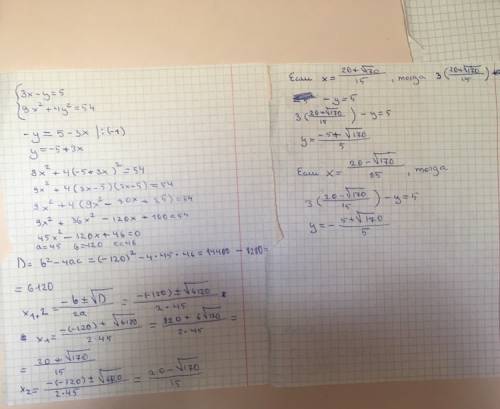 {3x-y=5
9x²+4y²=54
-y = 5-3x |:(-1)
y=-5+3x
9x²+4(-5+3x)²=54
9x²+4(3x-5)(3x-5)=54
9x²+4(9x²-30x+25)=54
9x²+36x²-120x+100=54
45x²-120x+46=0
a=45 b=120 c=46
D= b²-4ac=(-120)²-4·45·46=14400-8280=
=6120
x₁,₂= (-b±√D)/2a = (-(-120)±√6120)/(2·45)
x₁= (-(-120)+√6120)/(2·45) = (120+6√170)/(2·45) =
= (20+√170)/15
x₂= (-(-120)±√6120)/(2·45) = (20-√170)/15
Если x= (20+√170)/15, тогда 3((20+√170)/15)
-y=5
3((20+√170)/15)-y=5
y= (-5+√170)/5
Если x= (20-√170)/15, тогда
3((20-√170)/15)-y=5
y=- (5+√170)/5